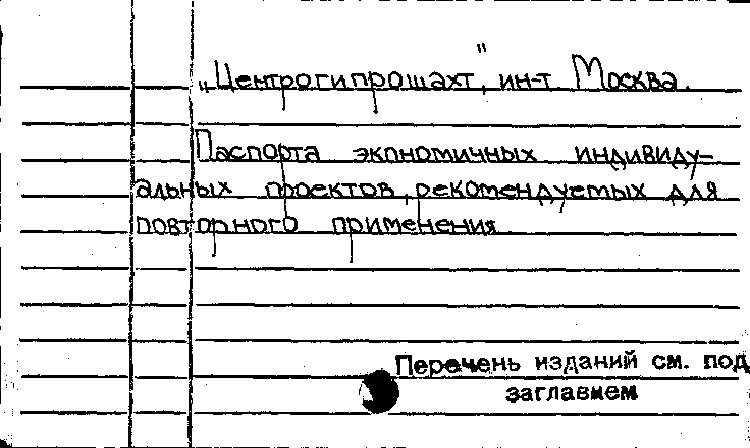 „Центрогипрошахт", ин-т Москва.
Паспорта экономичных индивиду-
альных проектов, рекомендуемых для
повторного применения
Перечень изданий см. под
заглавием